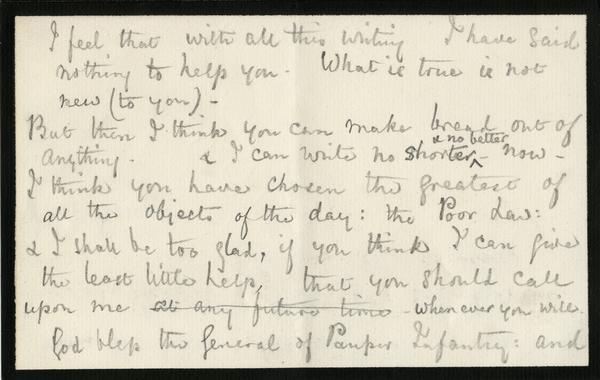 I feel that with all this writing I have said
nothing to help you. What is true is not
new (to you) -
But then I think you can make bread out of
anything. & I can write no shorter & no better - now -
I think you have chosen the greatest of
all the objects of the day: the Poor Law:
& I shall be too glad, if you think I can give
the least little help, that you should call
upon me at any future time - whenever you will.
God bless the General of Pauper Infantry: and